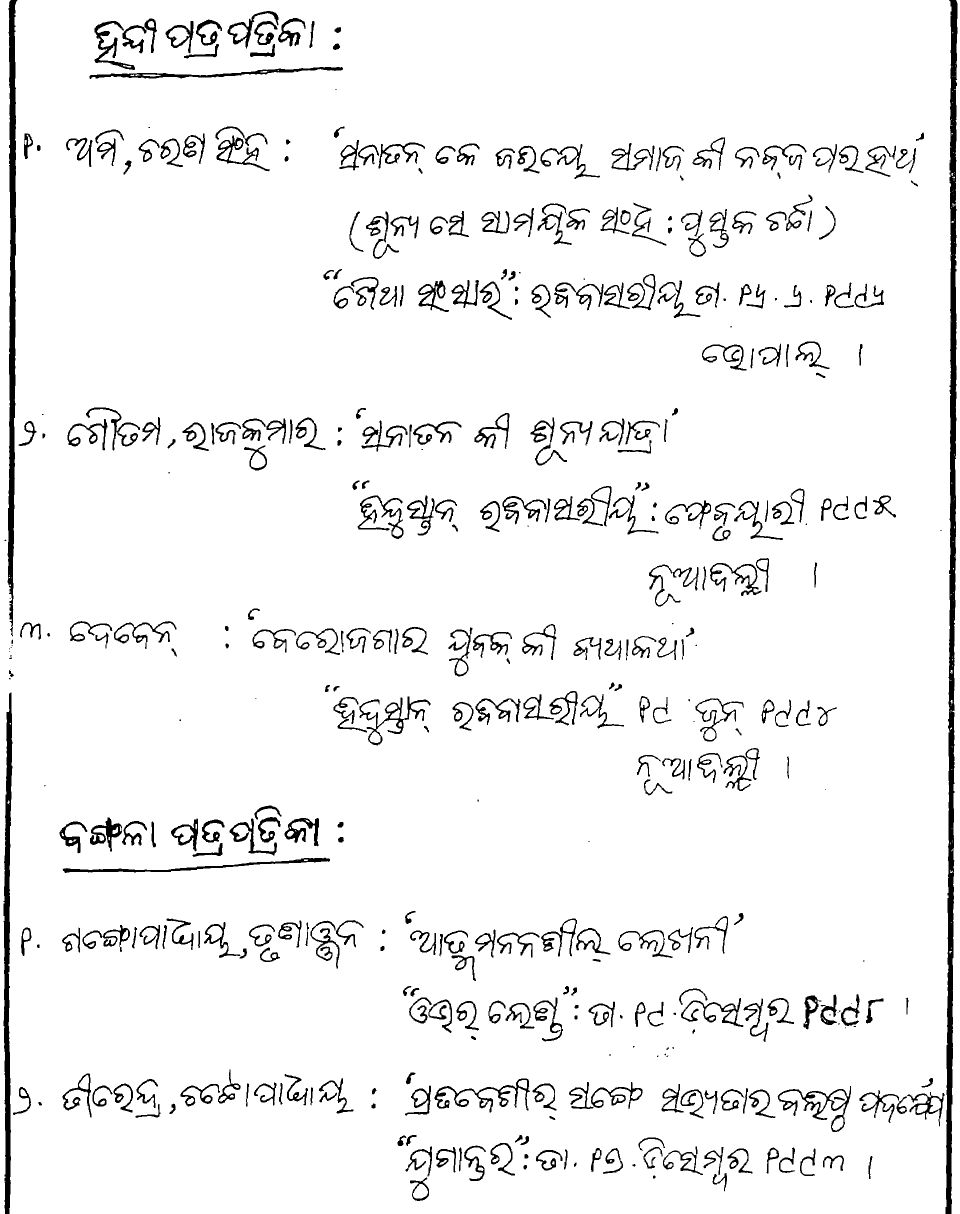 ହିନ୍ଦୀ ପତ୍ରପତ୍ରିକା :
୧. ଅମି, ଚରଣ ସିଂହ : 'ସନାତନ୍ କେ ଜରିୟେ ସମାଜ୍ କୀ ନବ୍‌ଜ ପର ହାଥ୍'
(ଶୂନ୍ୟ ସେ ସାମୟିକ ସଂହି : ପୁସ୍ତକ ଚର୍ଚ୍ଚା)
"ଚୈଥା ସଂସାର" : ରବିବାସରୀୟ ତା. ୧୫. ୬. ୧୯୯୫
ଭୋପାଲ୍ ।
୨. ଗୌତମ, ରାଜକୁମାର : 'ସନାତନ କୀ ଶୂନ୍ୟଯାତ୍ରା'
"ହିନ୍ଦୁସ୍ତାନ୍ ରବିବାସରୀୟ" : ଫେବୃୟାରୀ ୧୯୯୫
ନୂଆଦିଲ୍ଲୀ ।
୩. ଦେବେନ୍ : 'ବେରୋଜଗାର ଯୁବକ୍ କୀ ବ୍ୟଥାକଥା'
"ହିନ୍ଦୁସ୍ତାନ୍ ରବିବାସରୀୟ" ୧୯ ଜୁନ୍ ୧୯୯୪
ନୂଆଦିଲ୍ଲୀ ।
ବଙ୍ଗଳା ପତ୍ରପତ୍ରିକା :
୧. ଗଙ୍ଗୋପାଧ୍ୟାୟ, ତୃଣାଞ୍ଜନ : 'ଆତ୍ମମନନଶୀଲ୍ ଲେଖନୀ'
"ଓଭର୍ ଲେଣ୍ଡ" : ତା. ୧୯. ଡିସେମ୍ବର ୧୯୯୮ ।
୨. ଡୀରେନ୍ଦ୍ର, ଚଟ୍ଟୋପାଧ୍ୟାୟ : 'ପ୍ରତିବେଶୀର୍ ସଙ୍ଗେ ସଭ୍ୟତାର ବଲିଷ୍ଠ ପଦକ୍ଷେପ
"ଯୁଗାନ୍ତର" : ତା. ୧୭. ଡିସେମ୍ବର ୧୯୯୩ ।